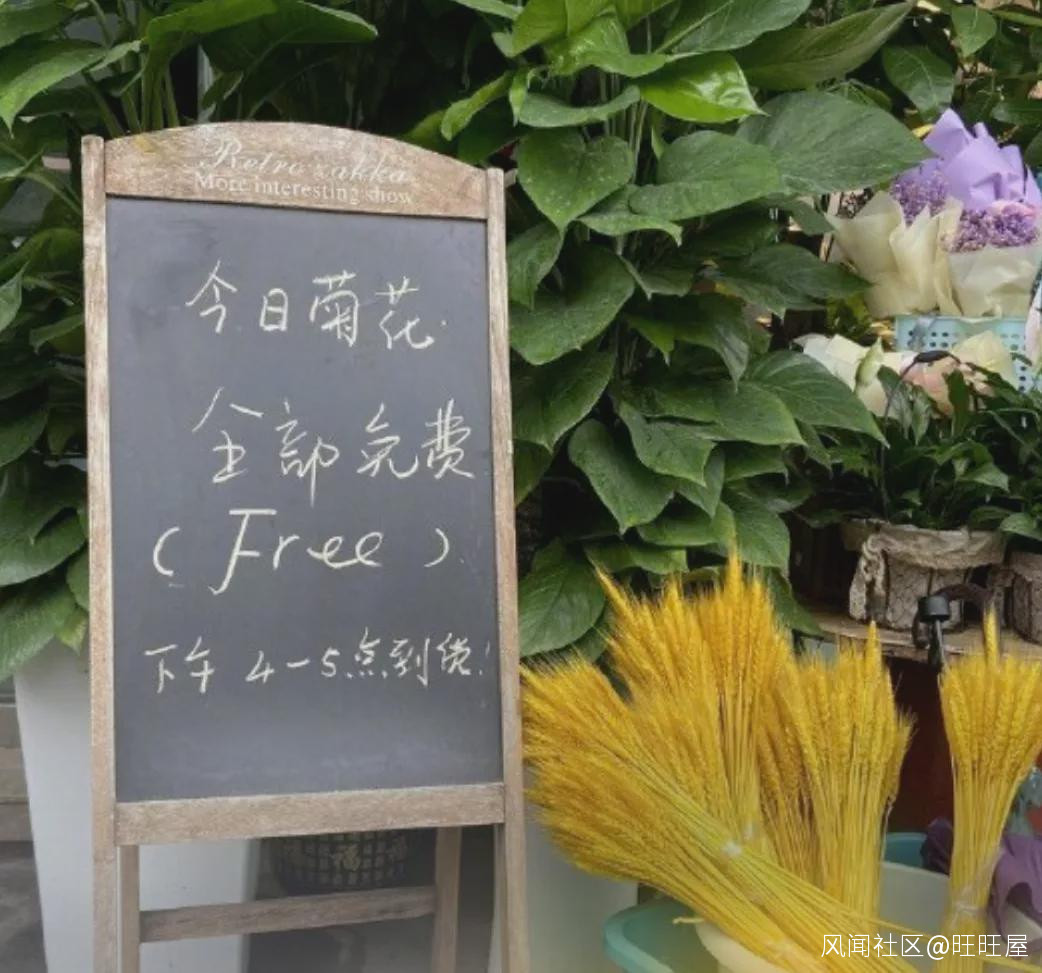 Retro zakka
More interesting show
今日菊花
全部免费
(Free)
下午4-5点到货!
福
风闻社区@旺旺屋